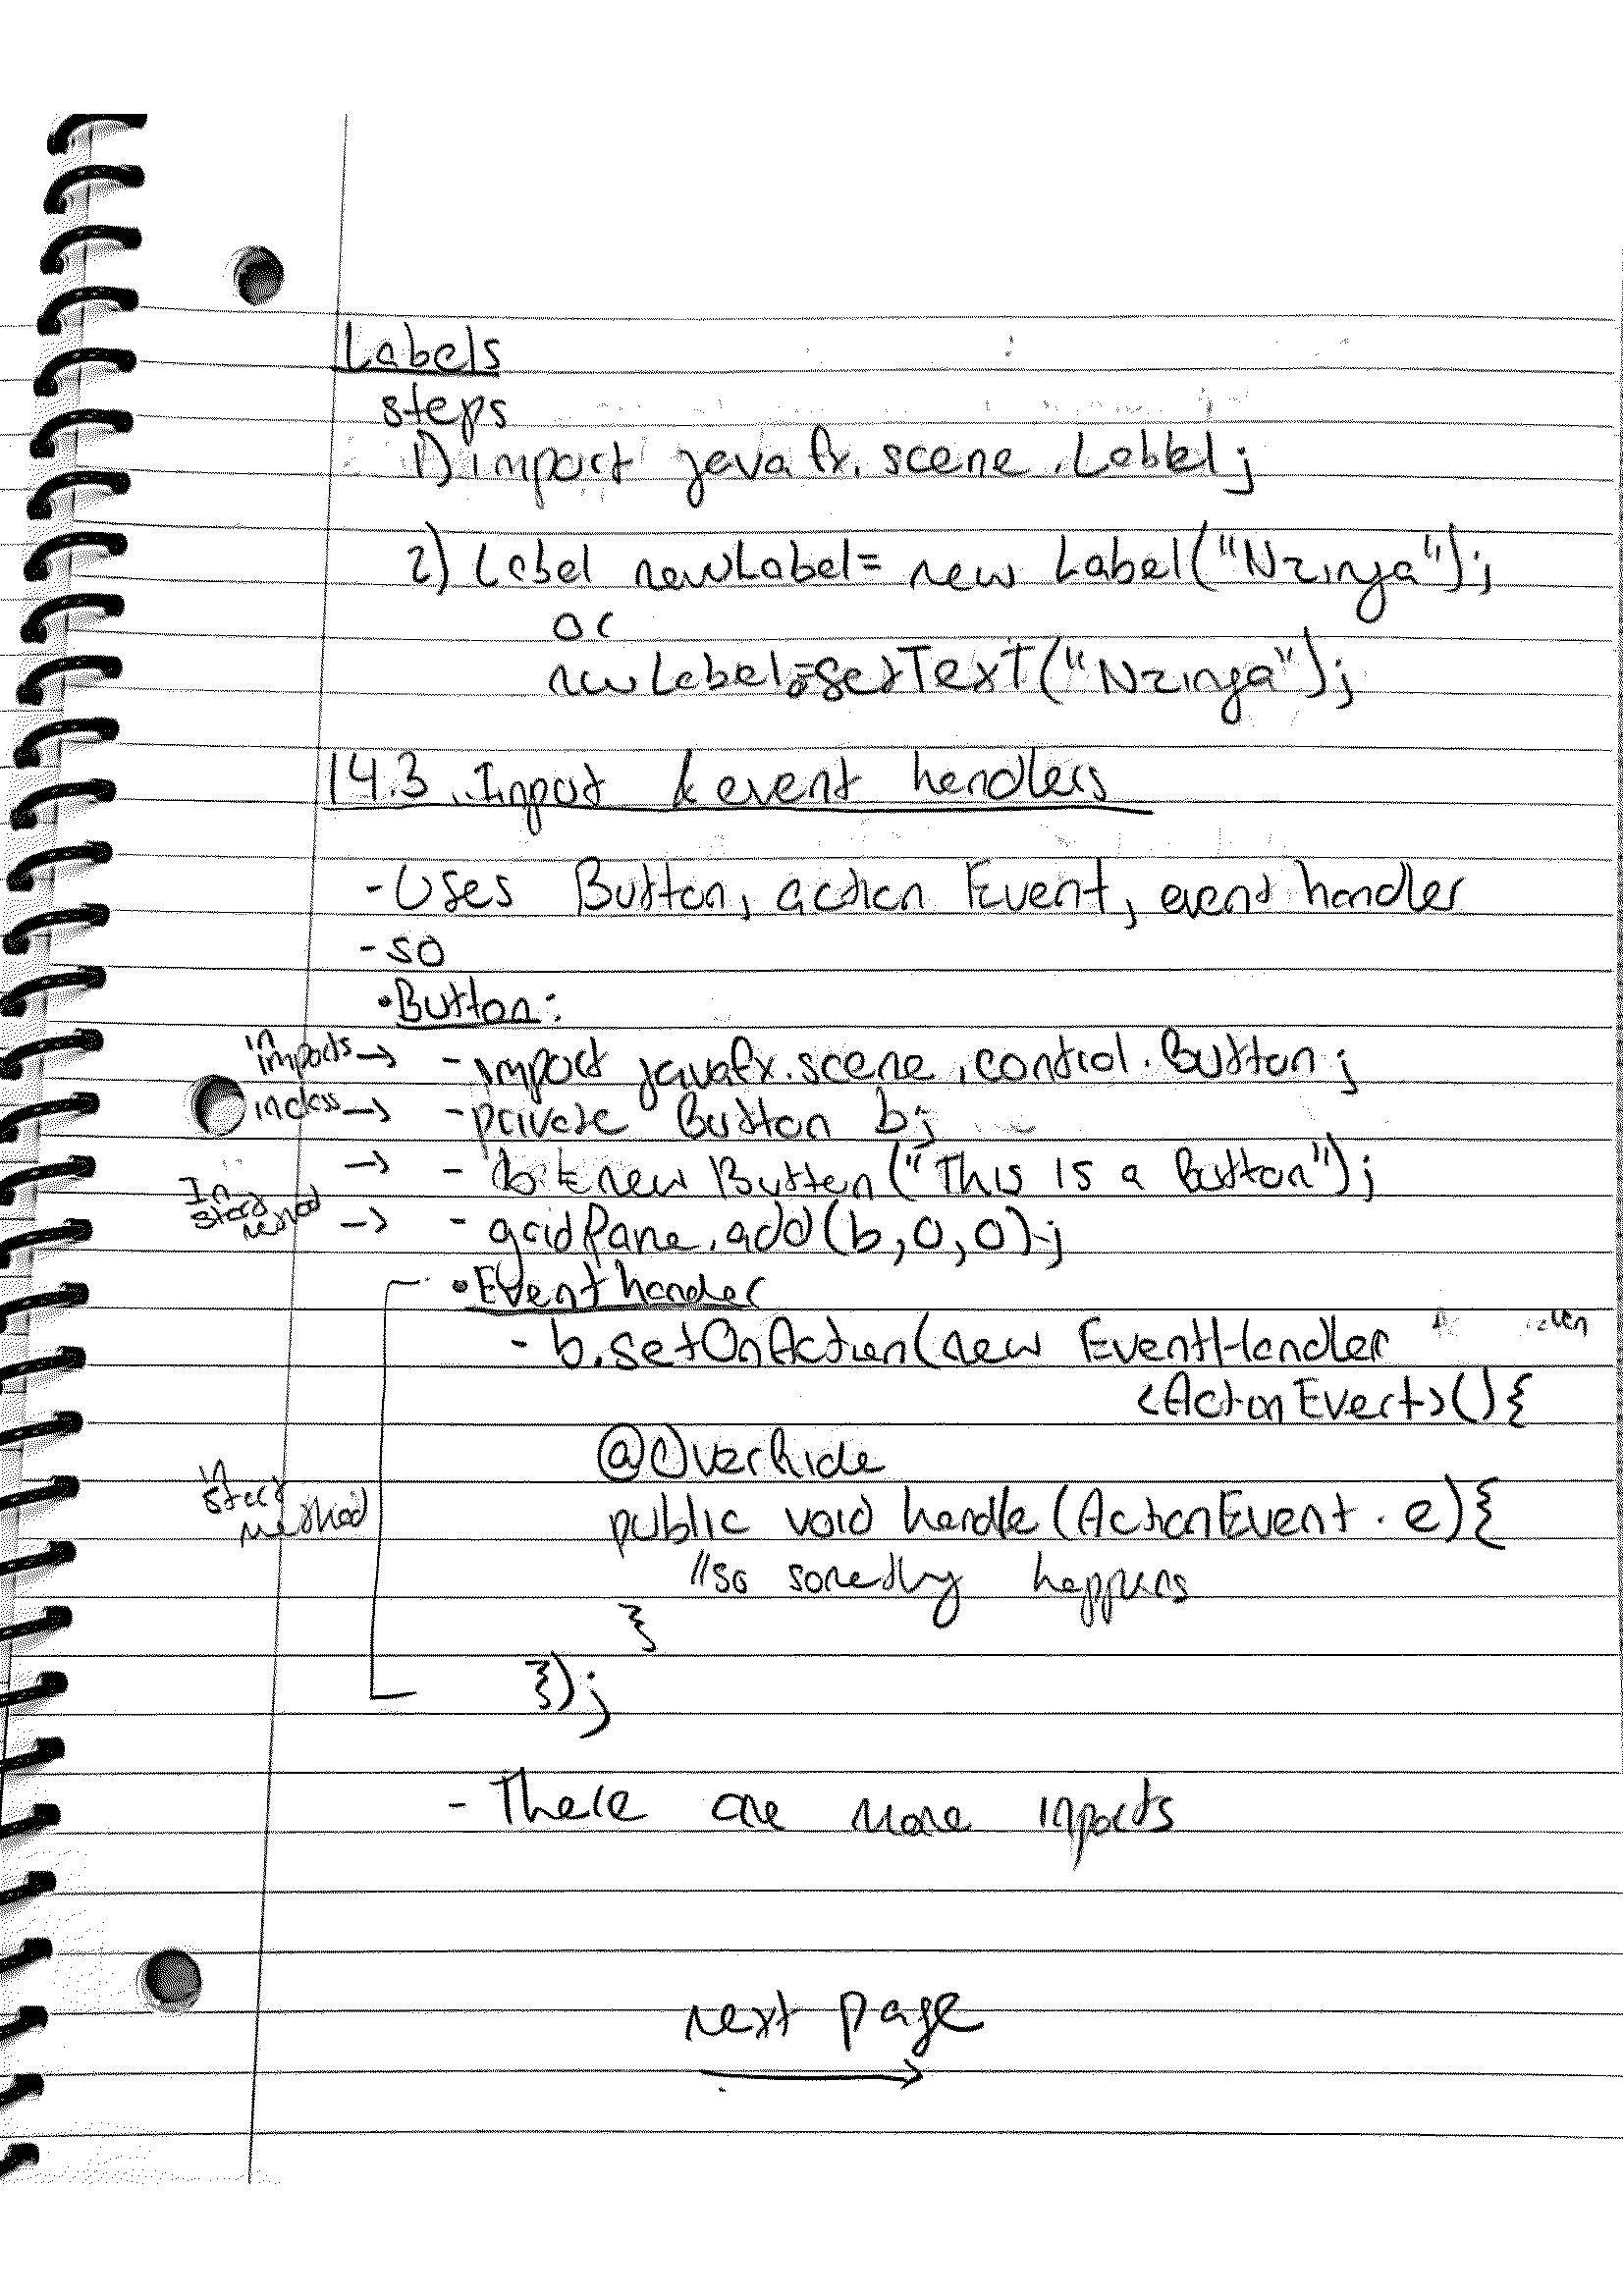 Labels
steps
1) import javafx.scene.Label;
2) Label newLabel = new Label("Nzinga");
or
newLabel.setText("Nzinga");
14.3 Input & event handlers
- Uses Button, action Event, event handler
- so
• Button:
in imports → - import javafx.scene.control.Button;
in class → - private Button b;
→ - b = new Button("This is a Button");
In start method → - gridPane.add(b,0,0);
• Event hander
- b.setOnAction(new EventHandler
<ActionEvent>(){
@Override
in start method
public void handle(ActionEvent e){
//so something happens
}
});
- There are more imports
next page
→